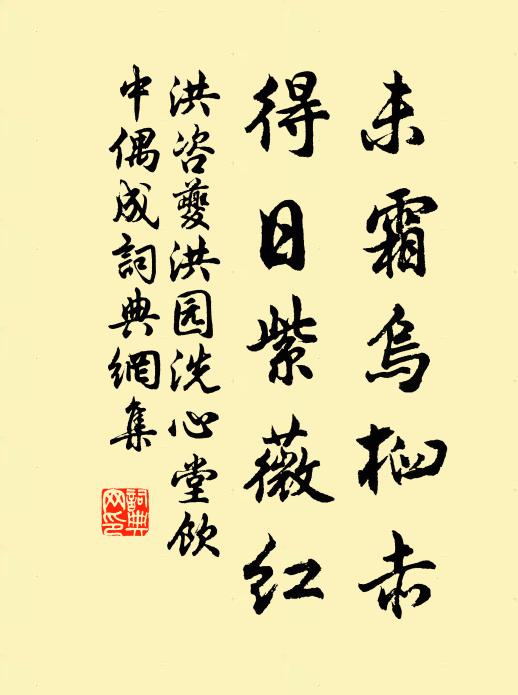 未霜烏桕赤
得日紫薇红
洪咨夔洪园洗心堂饮
中偶成詞典網集
詞典
网印